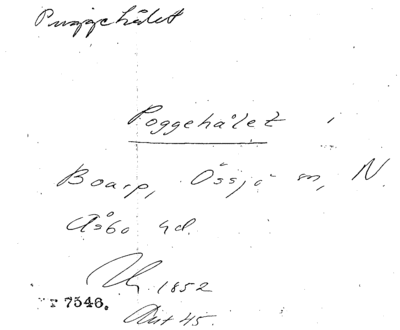 Puggehålet
Poggehålet i
Boarp, Össjö sn, N.
Åsbo hd.
1852
7546.
Ant 45.